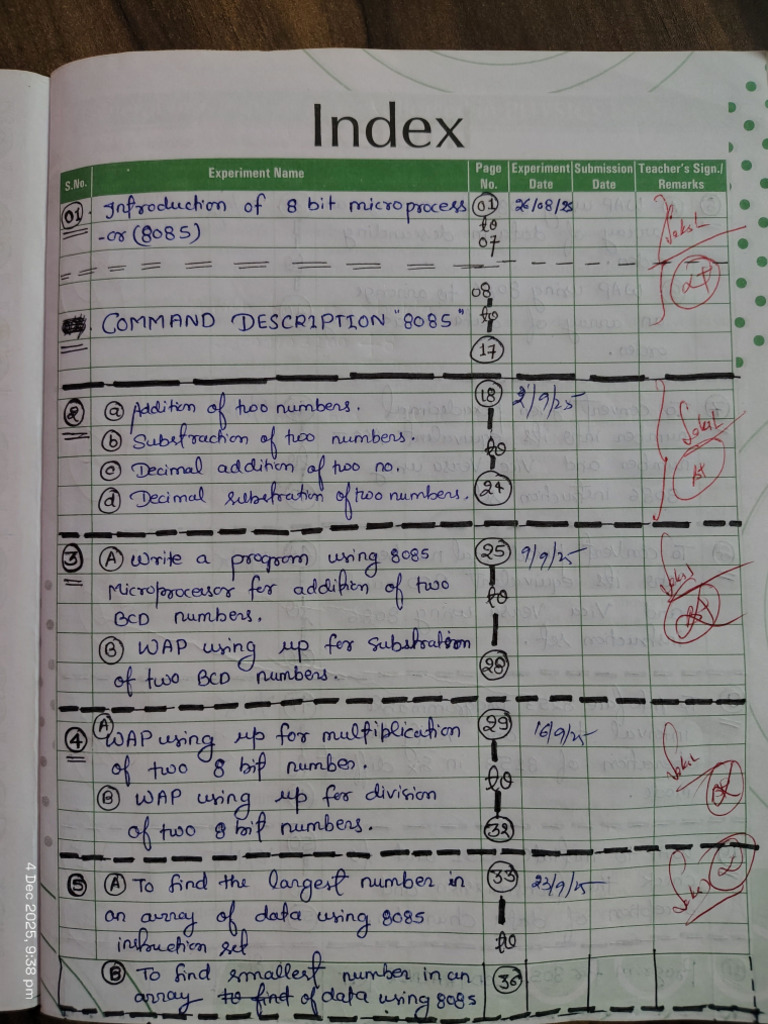 Index
S.No. Experiment Name Page No. Experiment Date Submission Date Teacher's Sign./ Remarks
01. Introduction of 8 bit microprocess 01 26/08/25
-or (8085) to 07
08
COMMAND DESCRIPTION "8085" to
17
2 (a) Addition of two numbers. 18 2/9/25
(b) Substraction of two numbers.
(c) Decimal addition of two no. to
(d) Decimal substration of two numbers. 24
3 (A) Write a program using 8085 25 9/9/25
Microprocessor for addition of two to
BCD numbers.
(B) WAP using up for Substration
of two BCD numbers. 28
4 (A) WAP using up for multiplication 29 16/9/25
of two 8 bit number. to
(B) WAP using up for division
of two 8 bit numbers. 32
5 (A) To find the largest number in 33 23/9/25
an array of data using 8085
instruction set to
(B) To find smallest number in an 36
array to find of data using 8085
4 Dec 2025, 9:38 pm